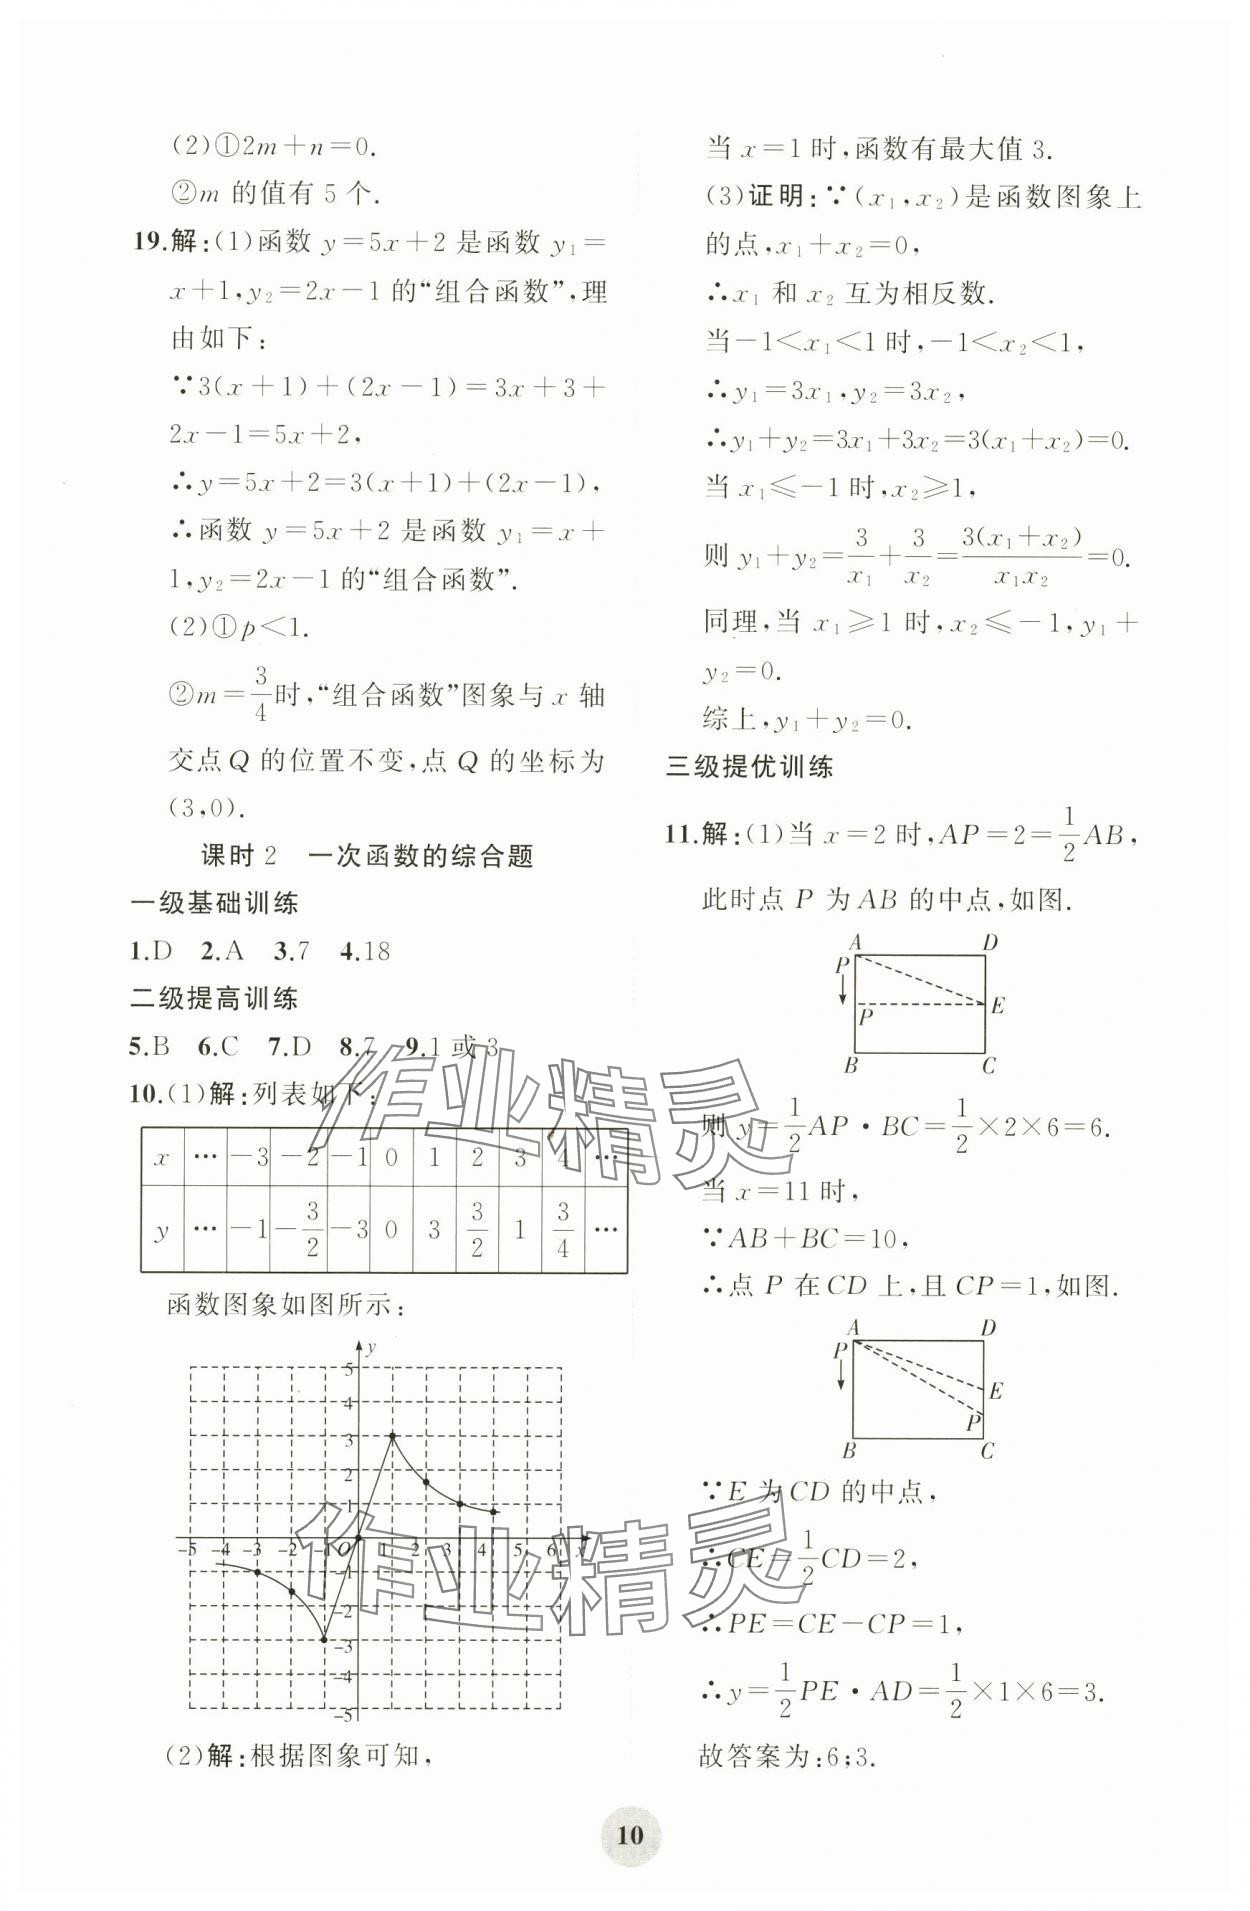 (2)①2m+n=0.
②m 的值有 5 个.
19.解:(1)函数 y=5x+2 是函数 y₁=
x+1,y₂=2x-1 的“组合函数”,理
由如下:
∵3(x+1)+(2x-1)=3x+3+
2x-1=5x+2,
∴y=5x+2=3(x+1)+(2x-1),
∴函数 y=5x+2 是函数 y₁=x+
1,y₂=2x-1 的“组合函数”.
(2)①p<1.
②m=3/4时,“组合函数”图象与 x 轴
交点 Q 的位置不变,点 Q 的坐标为
(3,0).
课时 2 一次函数的综合题
一级基础训练
1.D 2.A 3.7 4.18
二级提高训练
5.B 6.C 7.D 8.7 9.1 或 3
10.(1)解:列表如下:
x … -3 -2 -1 0 1 2 3 4 …
y … -1 -3/2 -3 0 3 3/2 1 3/4 …
函数图象如图所示:
y
5
4
3
2
1
-5 -4 -3 -2 -1 O 1 2 3 4 5 6 x
-1
-2
-3
-4
-5
(2)解:根据图象可知,
当 x=1 时,函数有最大值 3.
(3)证明:∵(x₁,x₂)是函数图象上
的点,x₁+x₂=0,
∴x₁ 和 x₂ 互为相反数.
当-1<x₁<1 时,-1<x₂<1,
∴y₁=3x₁,y₂=3x₂,
∴y₁+y₂=3x₁+3x₂=3(x₁+x₂)=0.
当 x₁≤-1 时,x₂≥1,
则 y₁+y₂=3/x₁+3/x₂=3(x₁+x₂)/x₁x₂=0.
同理,当 x₁≥1 时,x₂≤-1,y₁+
y₂=0.
综上,y₁+y₂=0.
三级提优训练
11.解:(1)当 x=2 时,AP=2=1/2AB,
此时点 P 为 AB 的中点,如图.
A D
P
P E
B C
则 y=1/2AP·BC=1/2×2×6=6.
当 x=11 时,
∵AB+BC=10,
∴点 P 在 CD 上,且 CP=1,如图.
A D
P
E
P
B C
∵E 为 CD 的中点,
∴CE=1/2CD=2,
∴PE=CE-CP=1,
∴y=1/2PE·AD=1/2×1×6=3.
故答案为:6;3.
作业精灵
作业精灵
10